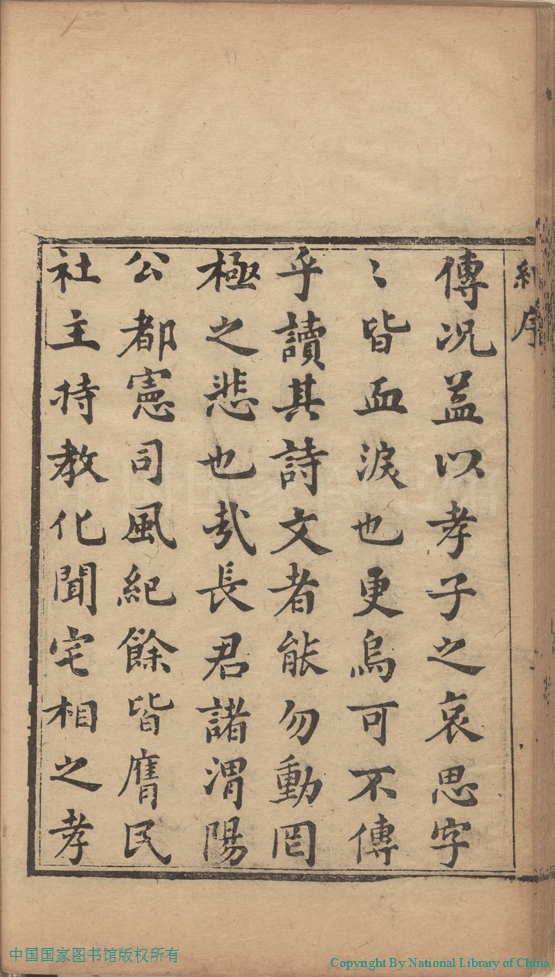 紀序
傳况盖以孝子之哀思字
〻皆血淚也更烏可不傳
乎讀其詩文者能勿動罔
極之悲也哉長君諸渭陽
公都憲司風紀餘皆膺民
社主持教化聞宅相之孝
中国国家图书馆版权所有
Copyright By National Library of China.